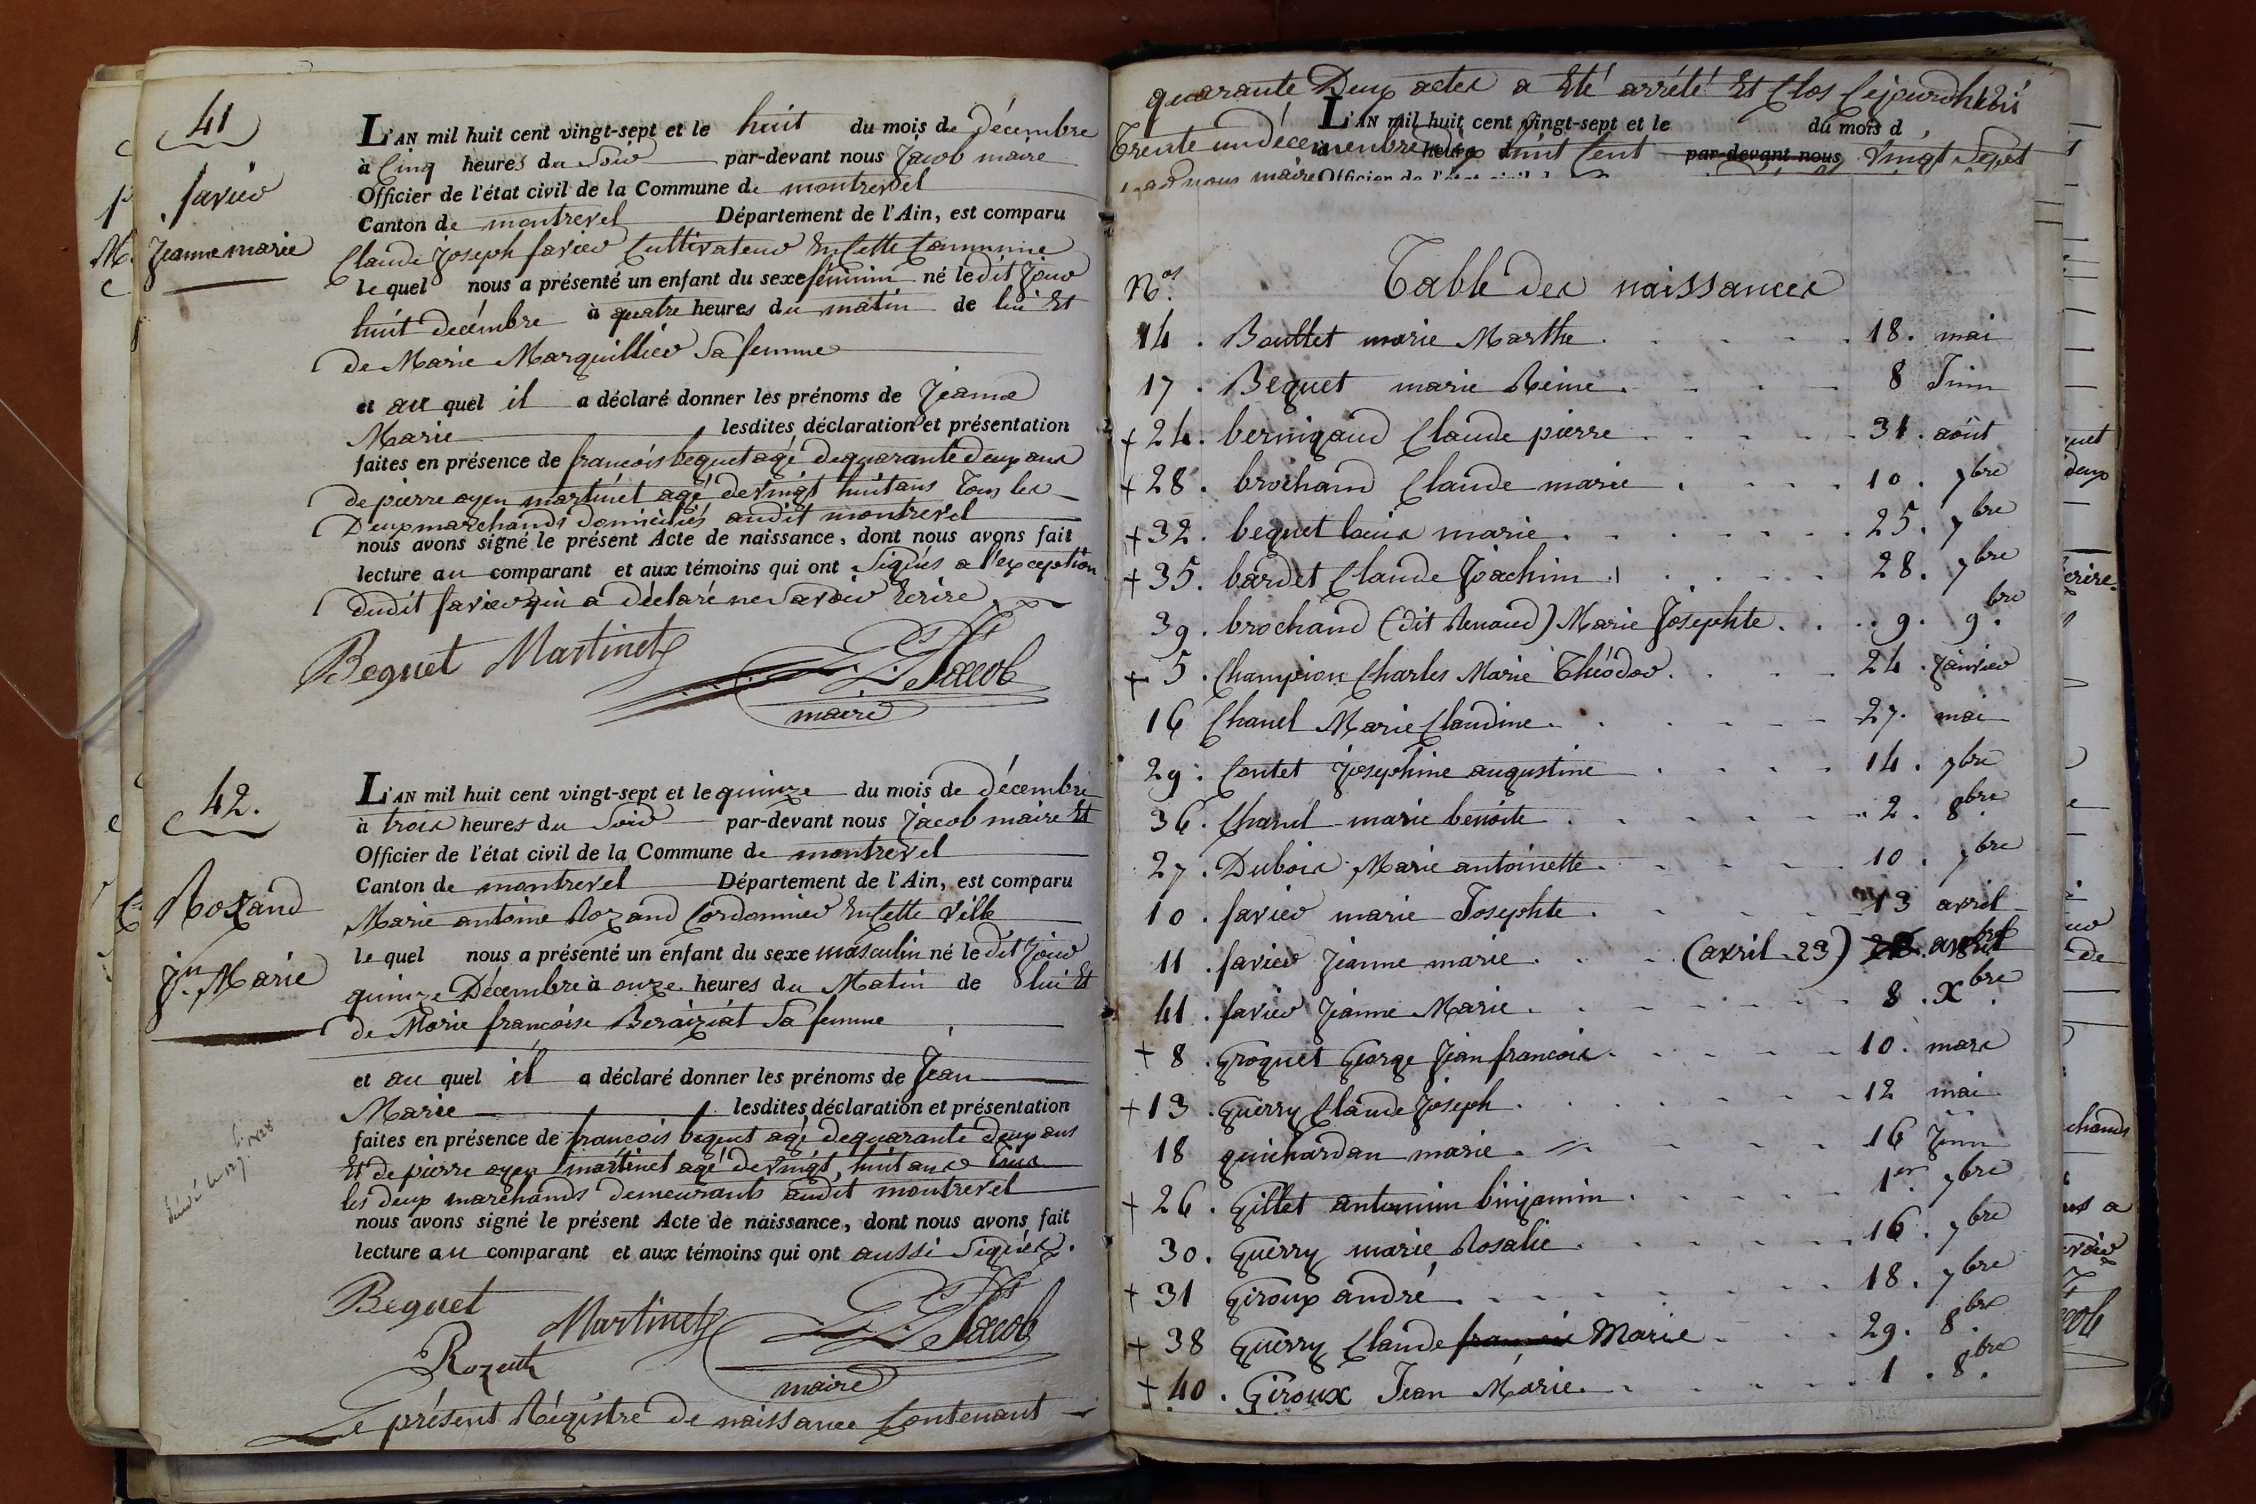 41
favier
Jeanne marie
L'AN mil huit cent vingt-sept et le huit du mois de décembre
à Cinq heures du Soir par-devant nous Jacob maire
Officier de l'état civil de la Commune de montrevel
Canton de montrevel Département de l'Ain, est comparu
Claude Joseph favier Cultivateur En Cette Commune
lequel nous a présenté un enfant du sexe féminin né le dit Jour
huit decémbre à quatre heures du matin de lui Et
de Marie Marquillier Sa femme
et au quel il a déclaré donner les prénoms de Jeanne
Marie lesdites déclaration et présentation
faites en présence de francois bequet agé de quarante deux ans
de pierre ayen martinet agé de vingt huit ans Tous les
Deux marchands domiciliés audit montrevel
nous avons signé le présent Acte de naissance, dont nous avons fait
lecture au comparant et aux témoins qui ont Signés a l'exception
dudit favier qui a déclaré ne Savoir Ecrire
Bequet Martinet Jacob
maire
42.
Rozand
Jn Marie
L'AN mil huit cent vingt-sept et le quinze du mois de décembre
à trois heures du Soir par-devant nous Jacob maire Et
Officier de l'état civil de la Commune de montrevel
Canton de montrevel Département de l'Ain, est comparu
Marie antoine Rozand Cordonnier En Cette Ville
lequel nous a présenté un enfant du sexe masculin né le dit Jour
quinze Décembre à onze heures du Matin de lui Et
de Marie francoise Beraiziat Sa femme
et au quel il a déclaré donner les prénoms de Jean
Marie lesdites déclaration et présentation
faites en présence de francois bequet agé de quarante deux ans
Et de pierre ayen martinet agé de vingt huit ans Tous
les deux marchands demeurants audit montrevel
nous avons signé le présent Acte de naissance, dont nous avons fait
lecture au comparant et aux témoins qui ont aussi Signés.
Bequet Martinet Jacob
maire
Le présent Régistre de naissance Contenant
quarante Deux actes a Eté arrété Et Clos Cejourdhui
L'AN mil huit cent vingt-sept et le du mois d
Trente un décembre huit Cent par-devant nous vingt Sept
nous maire Officier
Nos. Table des naissances
14. Bouttet marie Marthe 18. mai
17. Bequet marie Reine 8 Juin
+ 24. bernigaud Claude pierre 31. août
+ 28. brochand Claude marie 10. 7bre
+ 32. bequet louis marie 25. 7bre
+ 35. bardet Claude Joachim 28. 7bre
39. brochand (dit Renaud) Marie Josephte 9. 9bre
+ 5. Champion Charles Marie Théodor 24. Janvier
16 Chanel Marie Claudine 27. mai
29. Contet Josephine augustine 14. 7bre
36. Chanel marie benoite 2. 8bre
27. Dubois Marie antoinette 10. 7bre
10. favier marie Josephte 13 avril
11. favier Jeanne marie (avril 23)
41. favier Jeanne Marie 8. Xbre
+ 8. Groquet George Jean francois 10. mars
+ 13. Guerry Claude Joseph 12 mai
18 guichardan marie 16 Juin
+ 26. Gillet antonnin binjamin 1er. 7bre
30. Guerry marie Rosalie 16. 7bre
+ 31 Giroux andré 18. 7bre
+ 38 Guerry Claude Marie 29. 8bre
+ 40. Giroux Jean Marie 1. 8bre